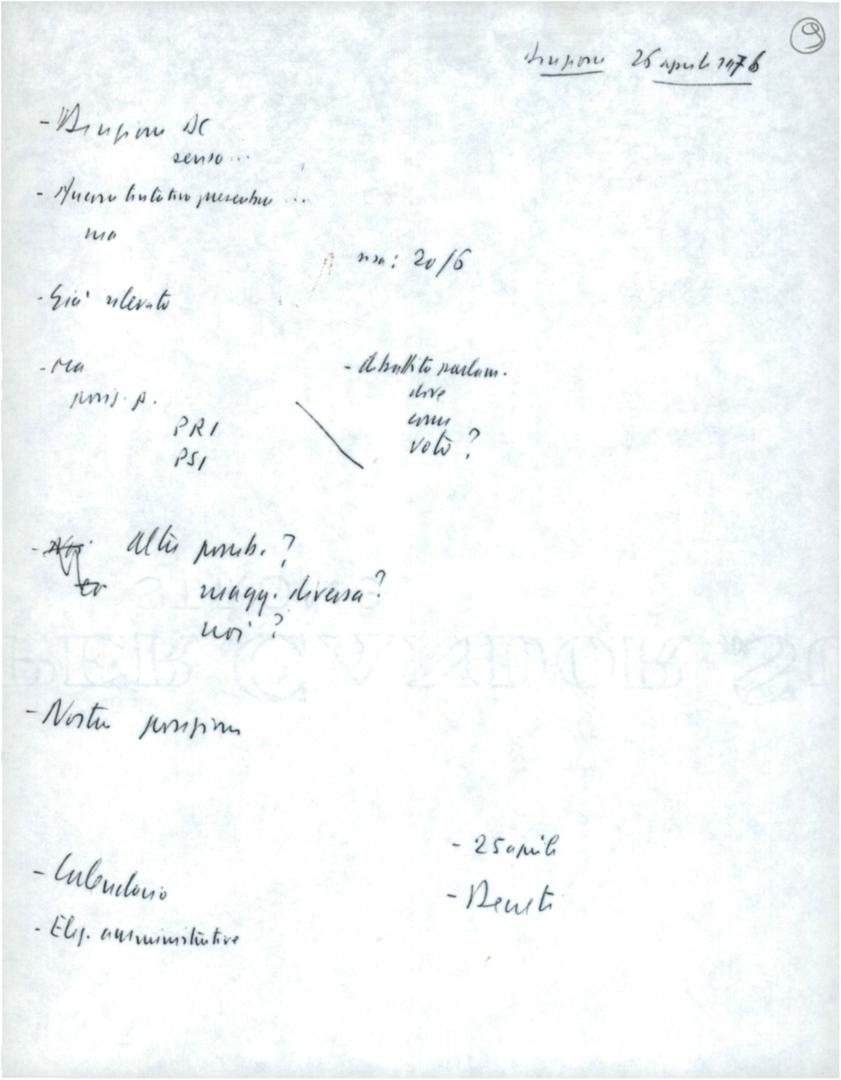 9
Direzione 26 aprile 1976
- Direzione DC
senso...
- Ancora tentativo presentare ...
ma
ma: 20/6
- Già rilevato
- ma
posiz. p.
PRI
PSI
- dibattito parlam.
dove
come
voto?
- Altre possib.?
magg. diversa?
noi?
- Nostra posizione
- 25 aprile
- Calendario
- Decreti
- Elez. amministrative